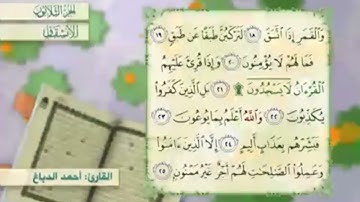 الجزء الثلاثون
الانشقاق
وَٱلْقَمَرِ إِذَا ٱتَّسَقَ ١٨ لَتَرْكَبُنَّ طَبَقًا عَن طَبَقٍ ١٩
فَمَا لَهُمْ لَا يُؤْمِنُونَ ٢٠ وَإِذَا قُرِئَ عَلَيْهِمُ
ٱلْقُرْءَانُ لَا يَسْجُدُونَ ۩ ٢١ بَلِ ٱلَّذِينَ كَفَرُوا۟
يُكَذِّبُونَ ٢٢ وَٱللَّهُ أَعْلَمُ بِمَا يُوعُونَ ٢٣
فَبَشِّرْهُم بِعَذَابٍ أَلِيمٍ ٢٤ إِلَّا ٱلَّذِينَ ءَامَنُوا۟
وَعَمِلُوا۟ ٱلصَّٰلِحَٰتِ لَهُمْ أَجْرٌ غَيْرُ مَمْنُونٍۭ ٢٥
القارئ: أحمد الدباغ